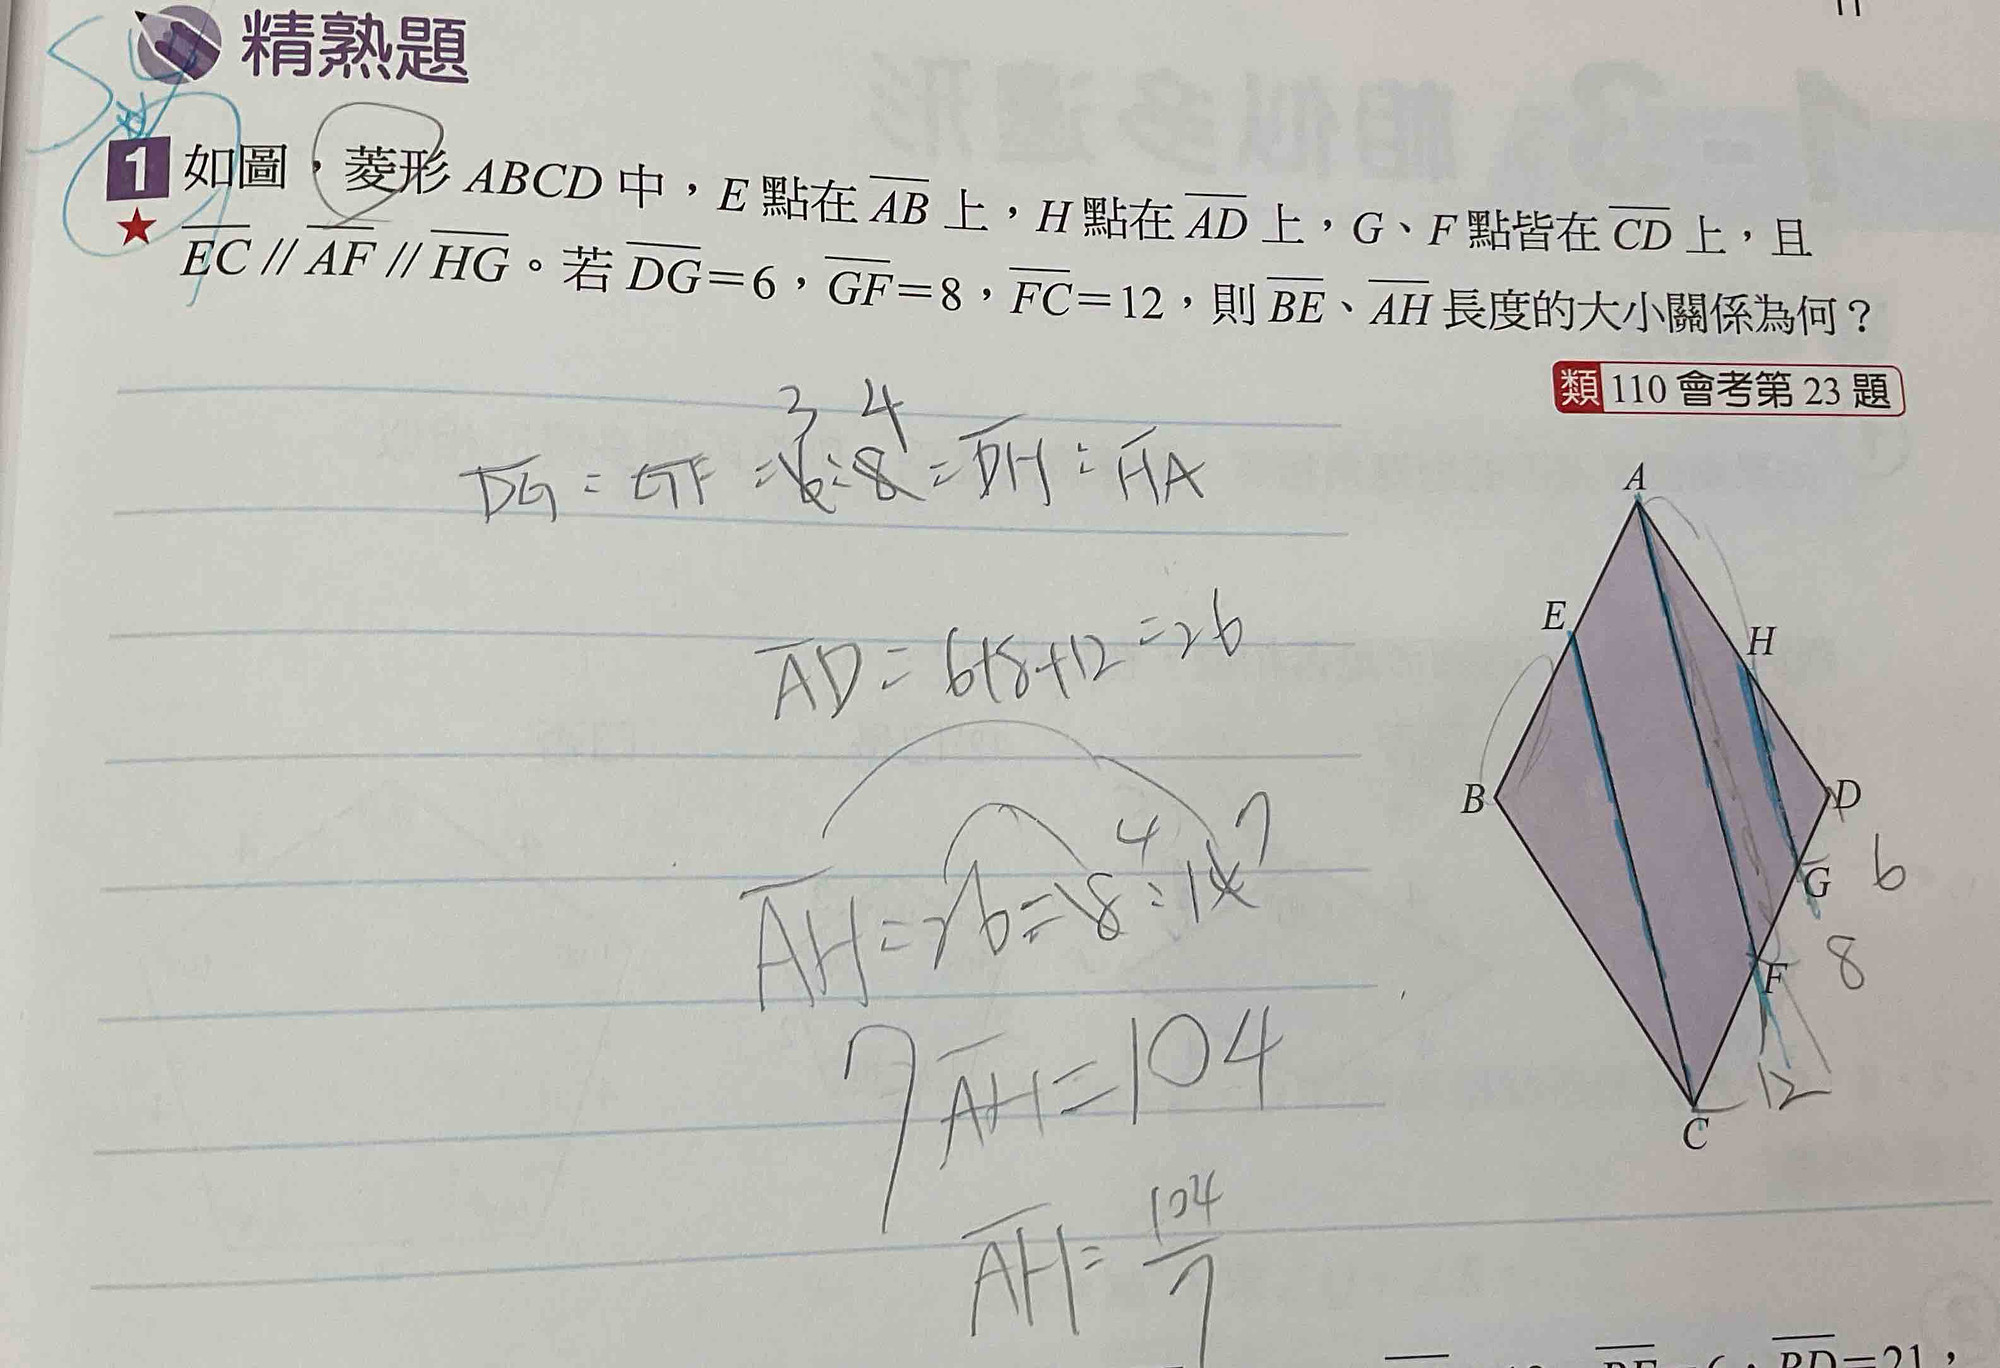 精熟題
1 如圖，菱形 ABCD 中，E 點在 AB 上，H 點在 AD 上，G、F 點皆在 CD 上，且
EC // AF // HG。若 DG=6，GF=8，FC=12，則 BE、AH 長度的大小關係為何？
類 110 會考第 23 題
3 4
DG : GF = 6 : 8 = DH : HA
AD = 6+8+12 = 26
4 7
AH : 26 = 8 : 14
7 AH = 104
AH = 104/7
A
E
H
B
D
G 6
F 8
12
C
BD=21，